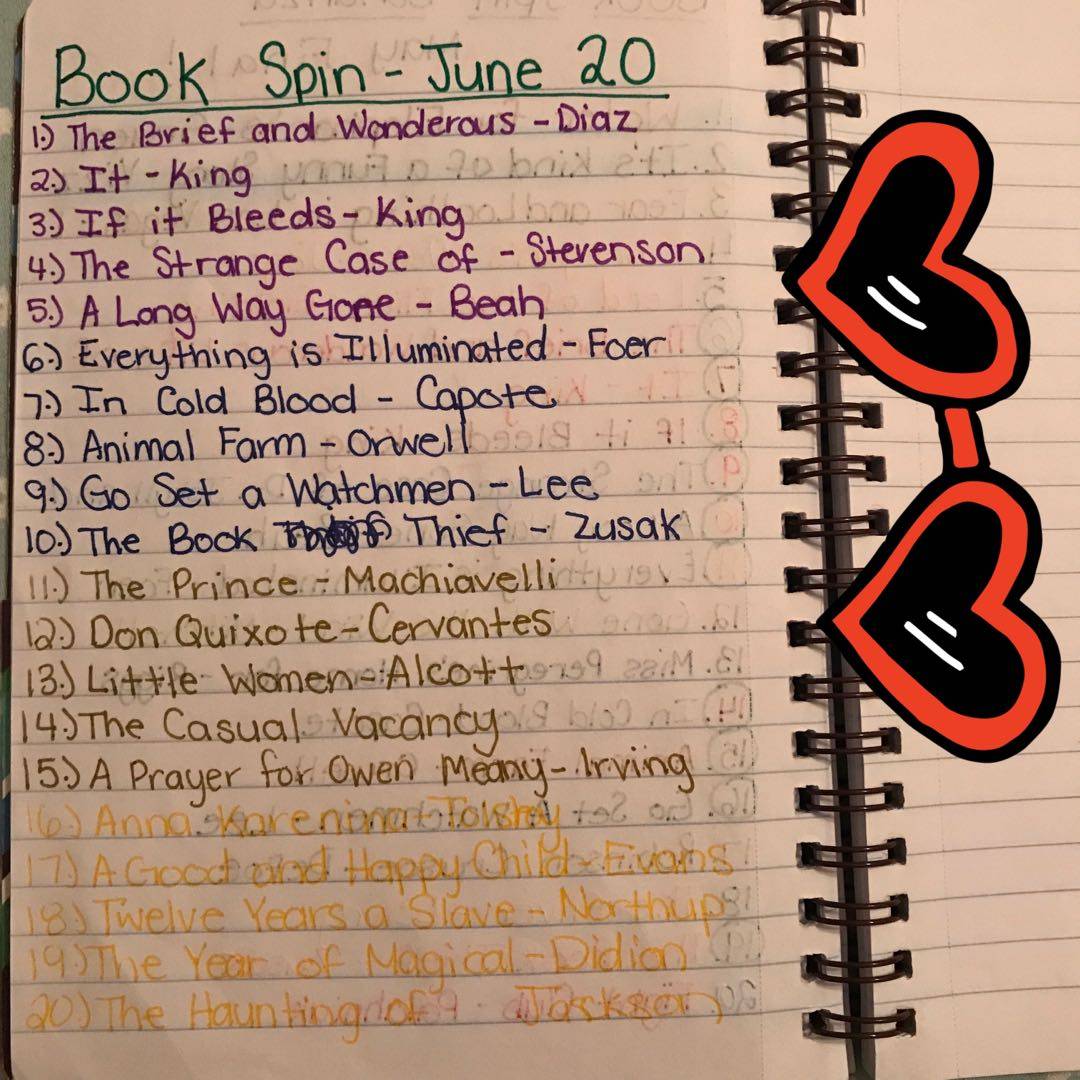 Book Spin - June 20
1.) The Brief and Wonderous - Diaz
2.) It - King
3.) If it Bleeds - King
4.) The Strange Case of - Stevenson
5.) A Long Way Gone - Beah
6.) Everything is Illuminated - Foer
7.) In Cold Blood - Capote
8.) Animal Farm - Orwell
9.) Go Set a Watchmen - Lee
10.) The Book Thief - Zusak
11.) The Prince - Machiavelli
12.) Don Quixote - Cervantes
13.) Little Women - Alcott
14.) The Casual Vacancy
15.) A Prayer for Owen Meany - Irving
16.) Anna Karenina - Tolstoy
17.) A Good and Happy Child - Evans
18.) Twelve Years a Slave - Northup
19.) The Year of Magical - Didion
20.) The Haunting of - Jackson